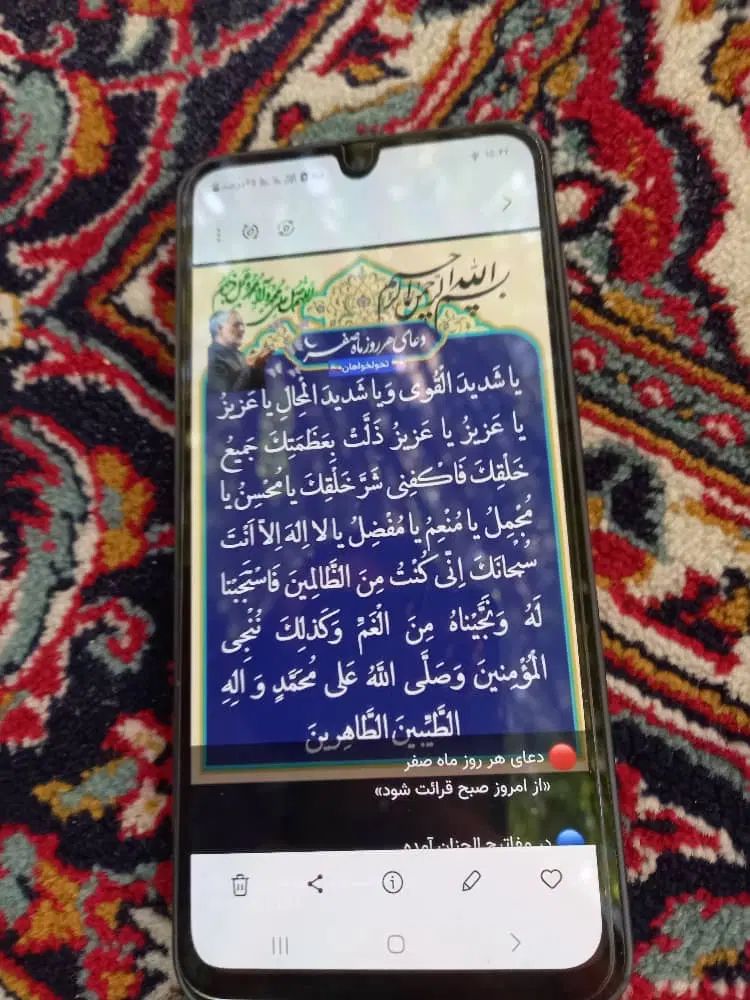 ۱۵:۴۲
بسم الله الرحمن الرحیم
دعای هر روز ماه صفر
تحولخواهان
یا شَدیدَ الْقُوی وَیا شَدیدَ الْمِحالِ یا عَزیزُ
یا عَزیزُ یا عَزیزُ ذَلَّتْ بِعَظَمَتِكَ جَمیعُ
خَلْقِكَ فَاكْفِنی شَرَّ خَلْقِكَ یا مُحْسِنُ یا
مُجْمِلُ یا مُنْعِمُ یا مُفْضِلُ یا لا اِلهَ اِلاّ اَنْتَ
سُبْحانَكَ اِنّی كُنْتُ مِنَ الظّالِمینَ فَاسْتَجَبْنا
لَهُ وَنَجَّیْناهُ مِنَ الْغَمِّ وَكَذلِكَ نُنْجِی
الْمُؤْمِنینَ وَصَلَّی اللّهُ عَلی مُحَمَّدٍ وَ الِهِ
الطَّیِّبینَ الطّاهِرینَ
دعای هر روز ماه صفر
«از امروز صبح قرائت شود»
در مفاتیح الجنان آمده